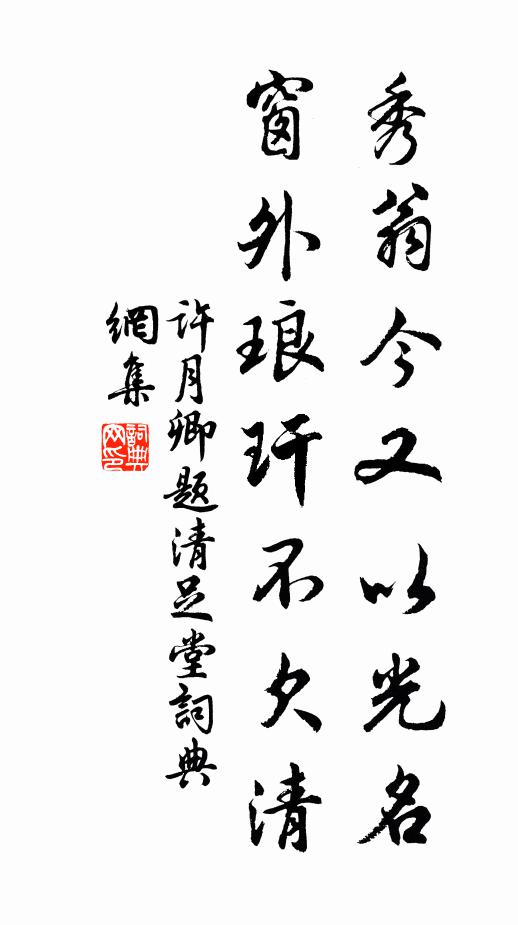 秀翁今又以光名
窗外琅玕不欠清
许月卿题清足堂詞典
網集
詞典網印